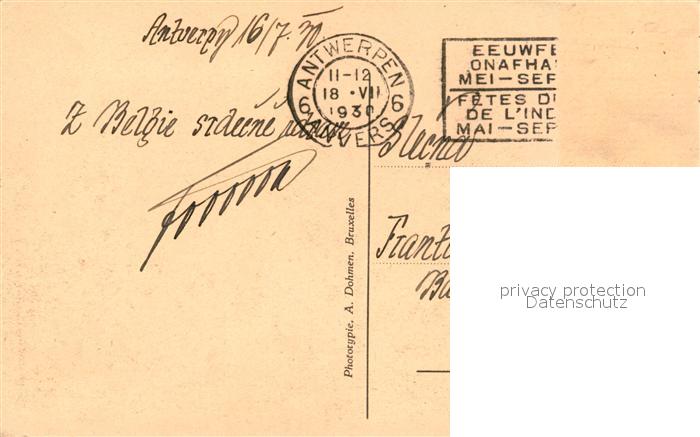 Antverpy 16/7.30.
ANTWERPEN
11-12
18 • VII
1930
6 6
ANVERS
EEUWFE
ONAFHA
MEI—SEP
FÊTES DU
DE L'IND
MAI—SEP
Z Belgie srdečné
Slečna
Franti
Phototypie, A. Dohmen, Bruxelles
privacy protection
Datenschutz